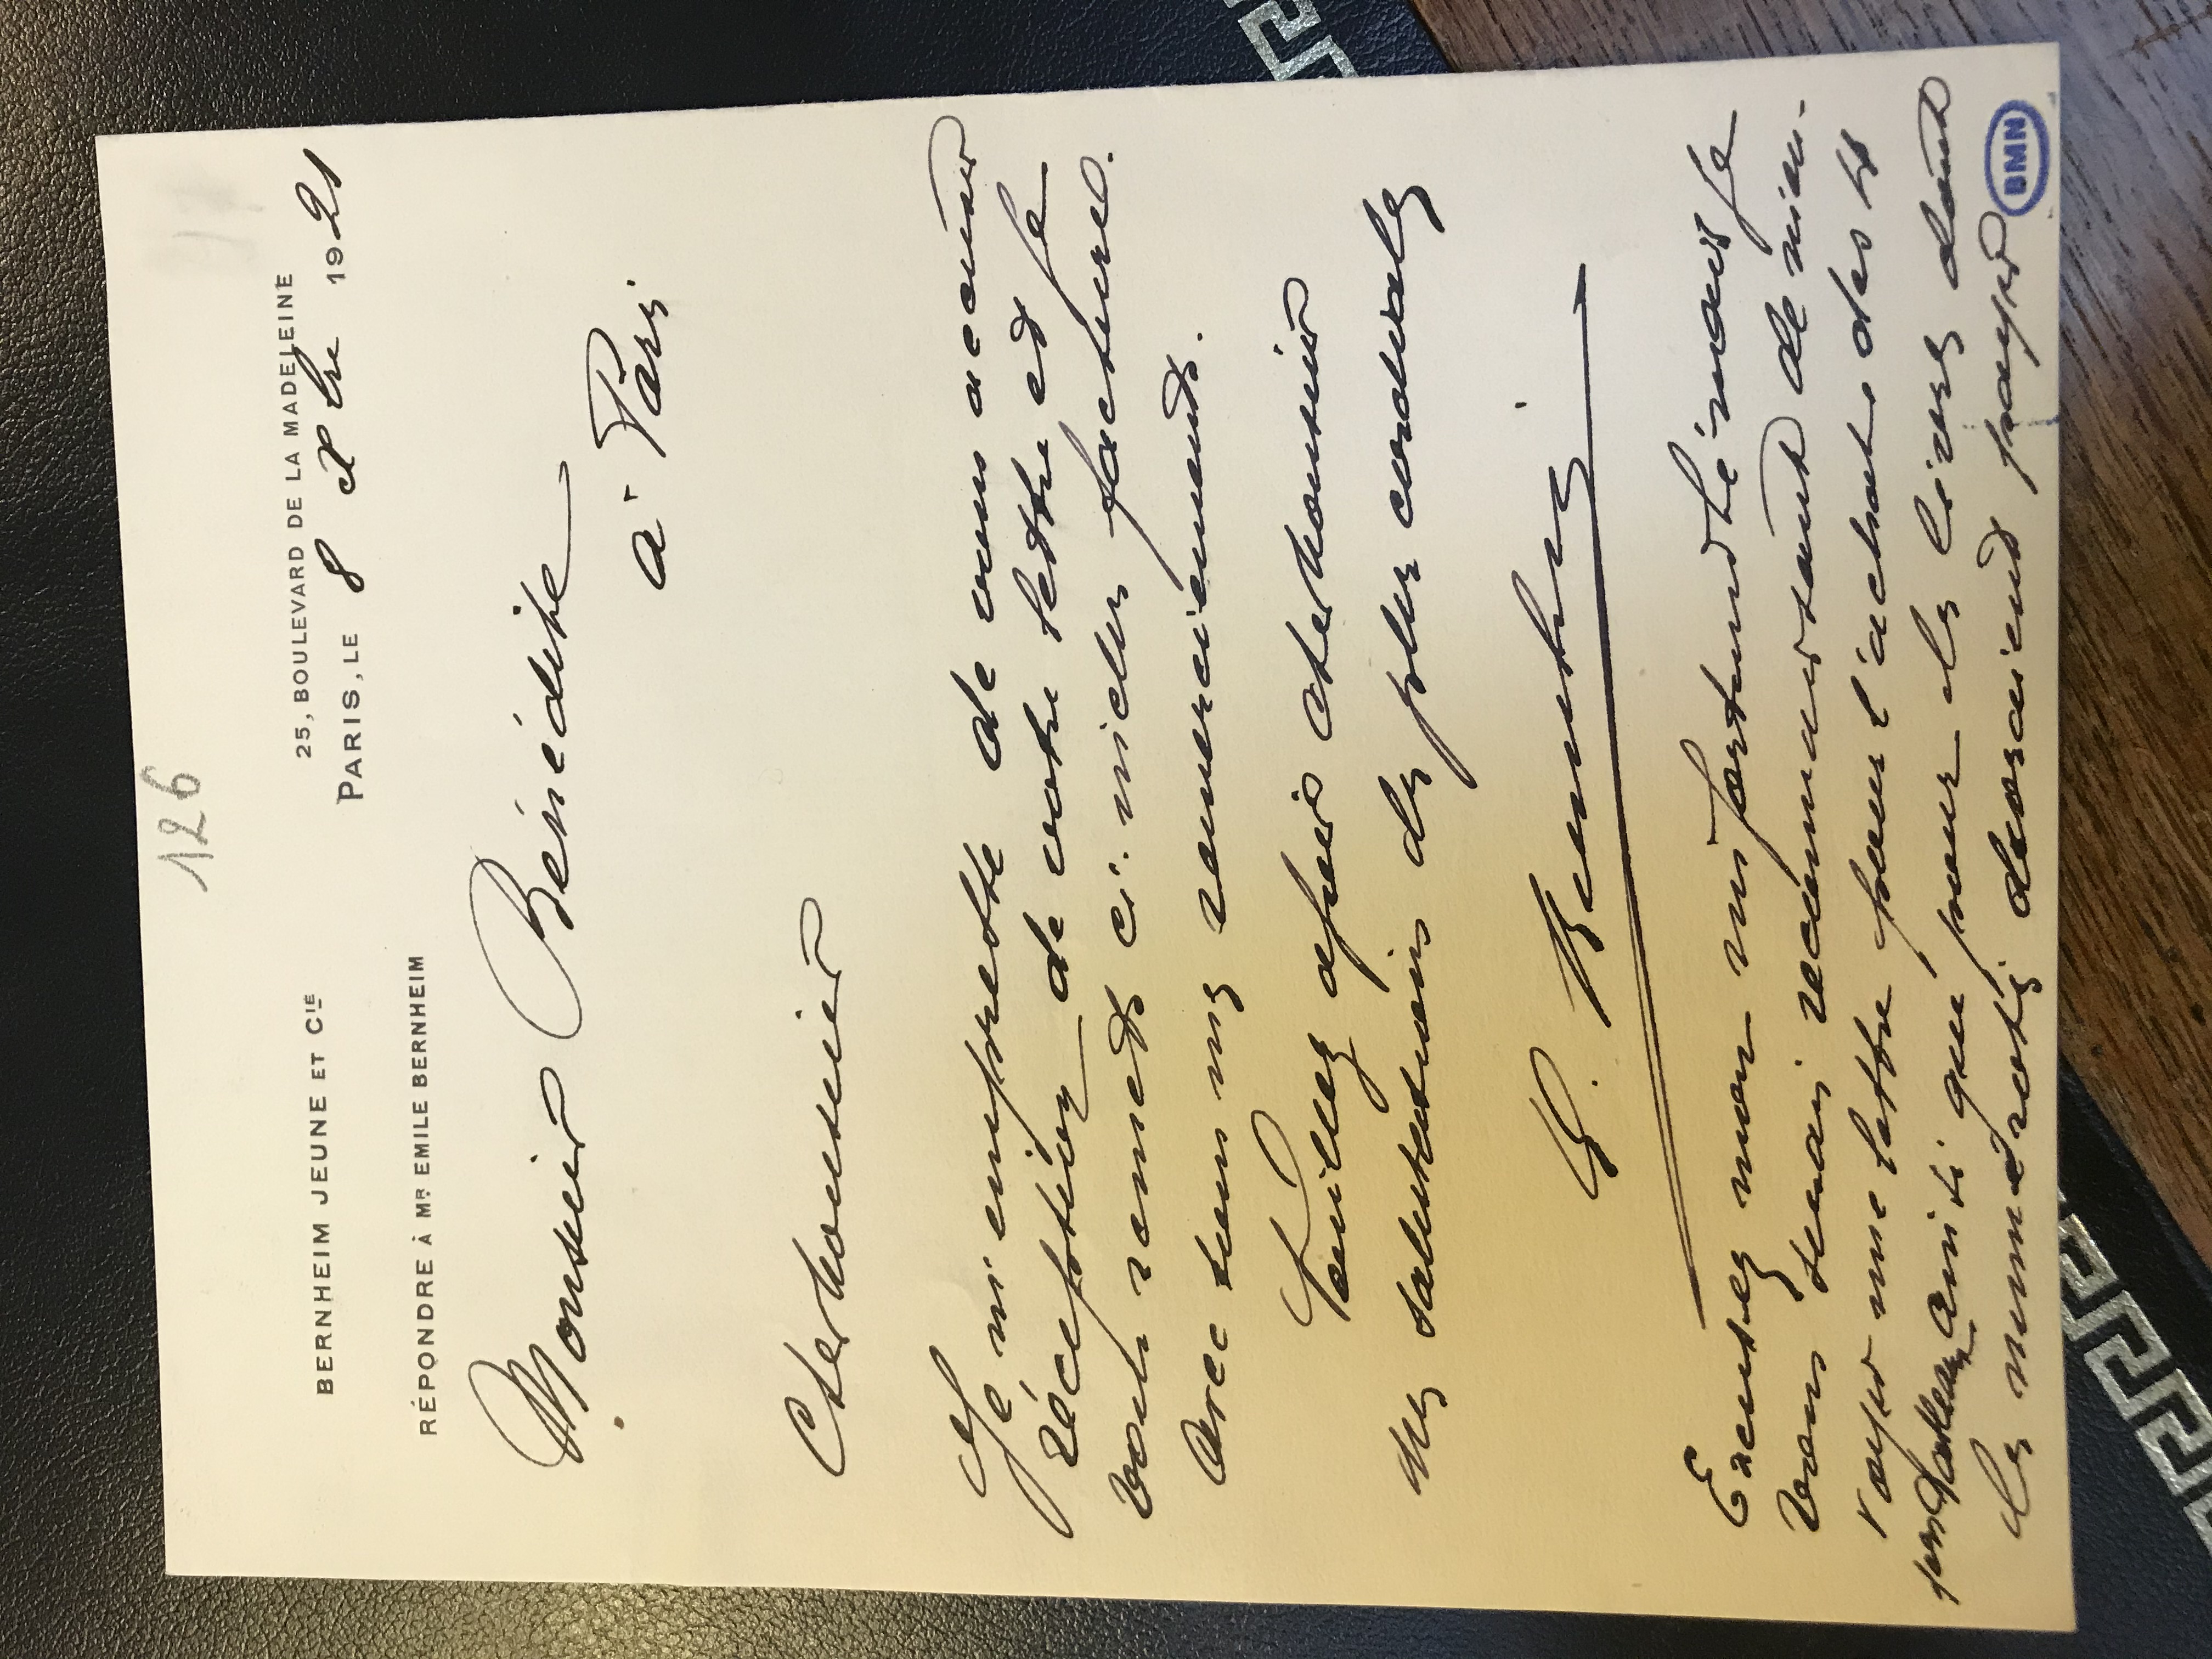 126
BERNHEIM JEUNE ET CIE
25, BOULEVARD DE LA MADELEINE
PARIS, LE 8 Xbre 1921
RÉPONDRE À MR EMILE BERNHEIM
Monsieur Bénédite
à Paris
Cher Monsieur
Je m'empresse de vous accuser
réception de votre lettre et je
vous remets ci-inclus facture.
Avec tous mes remerciements.
Veuillez agréer cher Monsieur
mes salutations les plus cordiales
E. Bernheim
Excusez mon mais je
vous serais reconnaissant de m'en-
voyer une lettre pour l'achat des 4
tableaux ainsi que pour les livres dont
les numérotés devraient
BMN